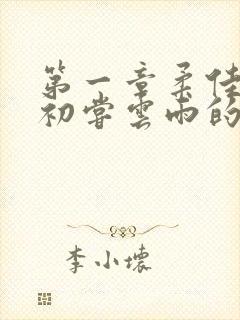 第一章柔佳
初尝云雨的
李小壞